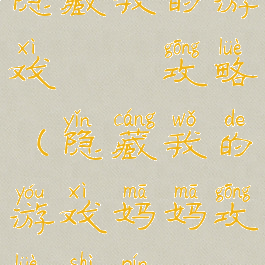 隐藏我的游
xì gōng lüè
戏 攻略
yǐn cáng wǒ de
（隐藏我的
yóu xì mā mā gōng
游戏妈妈攻
lüè shì pín